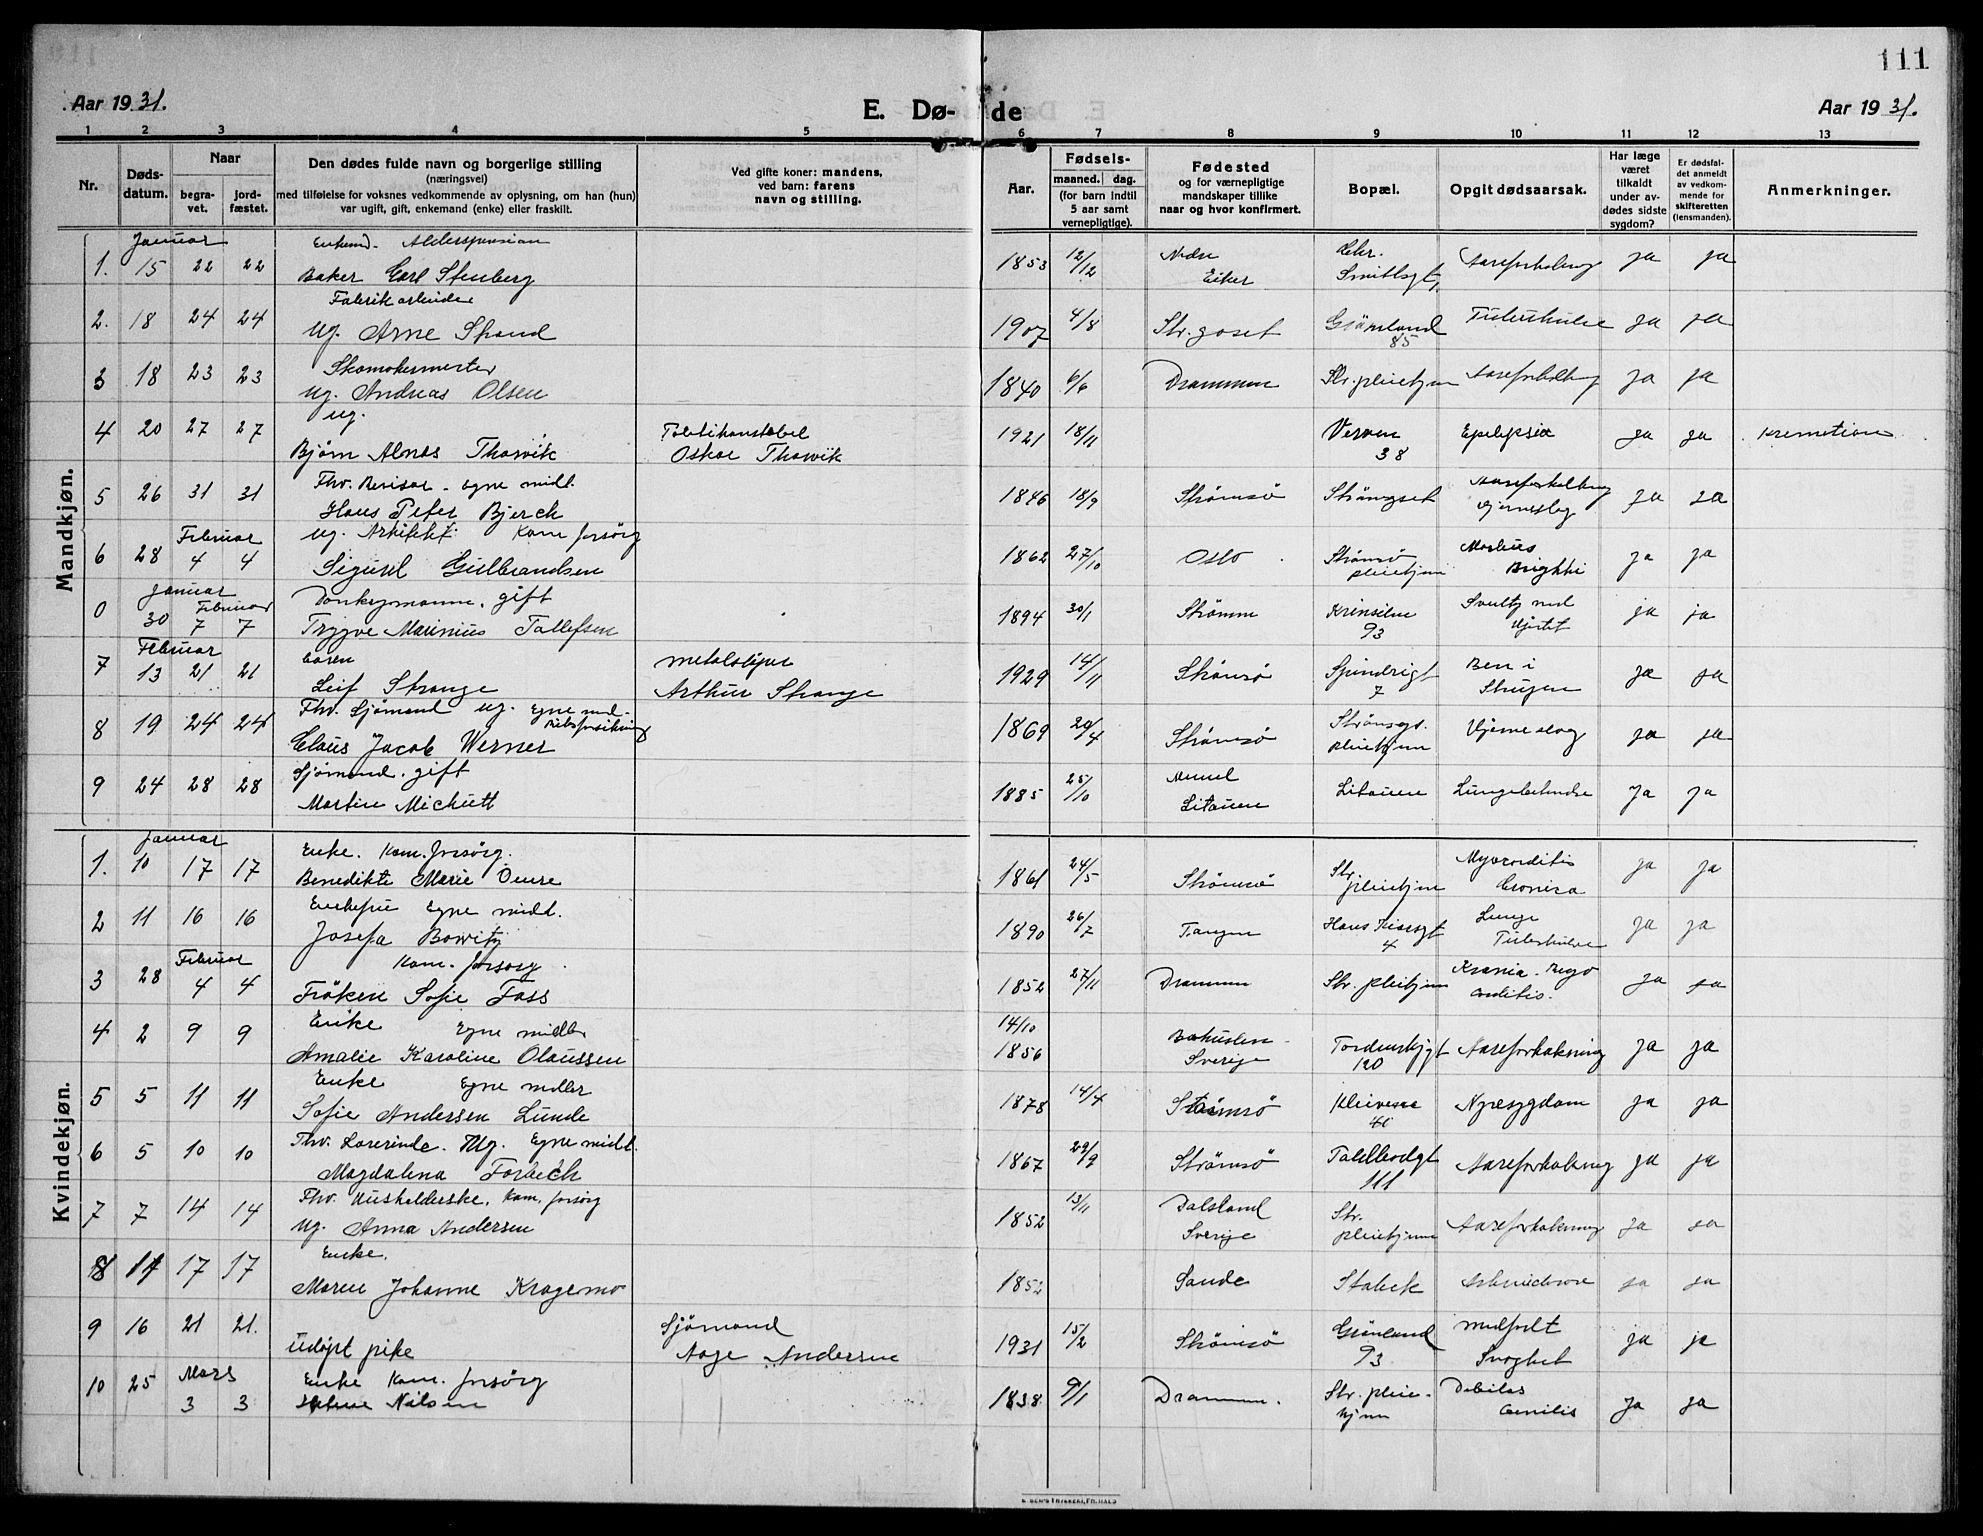 111
Aar 1931.
E. Døde
Aar 1931.
1 2 3 4 5 6 7 8 9 10 11 12 13
Nr.
Døds-datum.
Naar
begra-vet.
jord-fæstet.
Den dødes fulde navn og borgerlige stilling
(næringsvei)
med tilføielse for voksnes vedkommende av oplysning, om han (hun)
var ugift, gift, enkemand (enke) eller fraskilt.
Ved gifte koner: mandens,
ved barn: farens
navn og stilling.
Aar.
Fødsels-
maaned. dag.
(for barn indtil
5 aar samt
vernepligtige).
Fødested
og for værnepligtige
mandskaper tillike
naar og hvor konfirmert.
Bopæl.
Opgit dødsaarsak.
Har læge
været
tilkaldt
under av-
dødes sidste
sygdom?
Er dødsfal-
det anmeldt
av vedkom-
mende for
skifteretten
(lensmanden).
Anmerkninger.
Mandkjøn.
Januar Enkemd. Alderspension
1. 15 22 22 Baker Carl Stenberg 1853 12/12 Nedre Eiker Chr. Smithsgt, Aareforkalkning ja ja
Fabrikarbeider
2. 18 24 24 Ug. Arne Strand 1907 4/8 Str. goset Grønland 85 Tuberkulose ja ja
Skomakermester
3 18 23 23 ug. Andreas Olsen 1840 6/6 Drammen Str. pleiehjem Aareforkalkning ja ja
ug.
4 20 27 27 Bjørn Alnæs Thorvik Politikonstabel Oskar Thorvik 1921 18/11 Verven 38 Epelepsia ja ja Kremation
Fhv. Revisor - egne midl.
5 26 31 31 Hans Peter Bjerck 1846 18/9 Strømsø Strømgset Aareforkalkning Hjerneslag ja ja
Februar ug. Arkitekt. Kom forsørg
6 28 4 4 Sigurd Gulbrandsen 1862 27/10 Oslo Strømsø pleiehjem Morbus Brightii ja ja
Januar Februar Donkeymann. gift
0 30 7 7 Trygve Marinius Tollefsen 1894 30/1 Strømm 93 ja ja
Februar baren
7 13 21 21 Leif Strange metalsliper Arthur Strange 1929 14/11 Strømsø 7 Ben i Strupen ja ja
Fhv. Sjømand ug. Egne mid.
8 19 24 24 Claus Jacob Werner 1869 Strømsø Strømsgt. pleiehjem Hjerne slag ja ja
Sjømand. gift
9 24 28 28 Martin Michutt 1885 25/10 Memel Litauen Litauen Lungebetendse Ja ja
Kvindekjøn.
Januar Enke. Kom. forsørg.
1. 10 17 17 Benedikte Marie 1861 24/5 Strømsø Str. pleiehjem Myocorditis Cronica ja ja
Enkefru Egne midl.
2 11 16 16 Josefa Bowitz 1890 26/7 Tangen Hans Kiærsgt 4 Lunge Tuberkulose ja ja
Februar Kom. forsorg
3 28 4 4 Frøken Sofie Foss 1852 27/11 Drammen Str. pleiehjem ja ja
Enke Egne midler
4 2 9 9 Amalie Karoline Olaussen 14/10 1856 Bohuslen Sverige Tordenskjgt 120 Aareforkalkning ja ja
Enke Egne midler
5 5 11 11 Sofie Andersen Lunde 1878 14/4 Strømsø Kleivene 40 Nyresygdom ja ja
Fhv. Lærerinde. Ug. Egne midl.
6 5 10 10 Magdalena Forbech 1867 29/9 Strømsø Tollbodgt 111 Aareforkalkning ja ja
Fhv. Husholderske. Kom. forsørg
7 7 14 14 Ug. Anna Andersen 1852 13/11 Dalsland Sverige Str. pleiehjem Aareforkalkning ja ja
Enke.
8 11 17 17 Maren Johanne Kragemo 1852 Sande Stabek ja ja
9 16 21 21. Udøpt pike Sjømand Aage Andersen 1931 15/2 Strømsø Grønland 93 Medfødt Svaghet ja ja
Mars Enke Kom. forsørg
10 25 3 3 Nilsen 1838 9/1 Drammen. Str. pleie-hjem Debilitas Cenilis ja ja